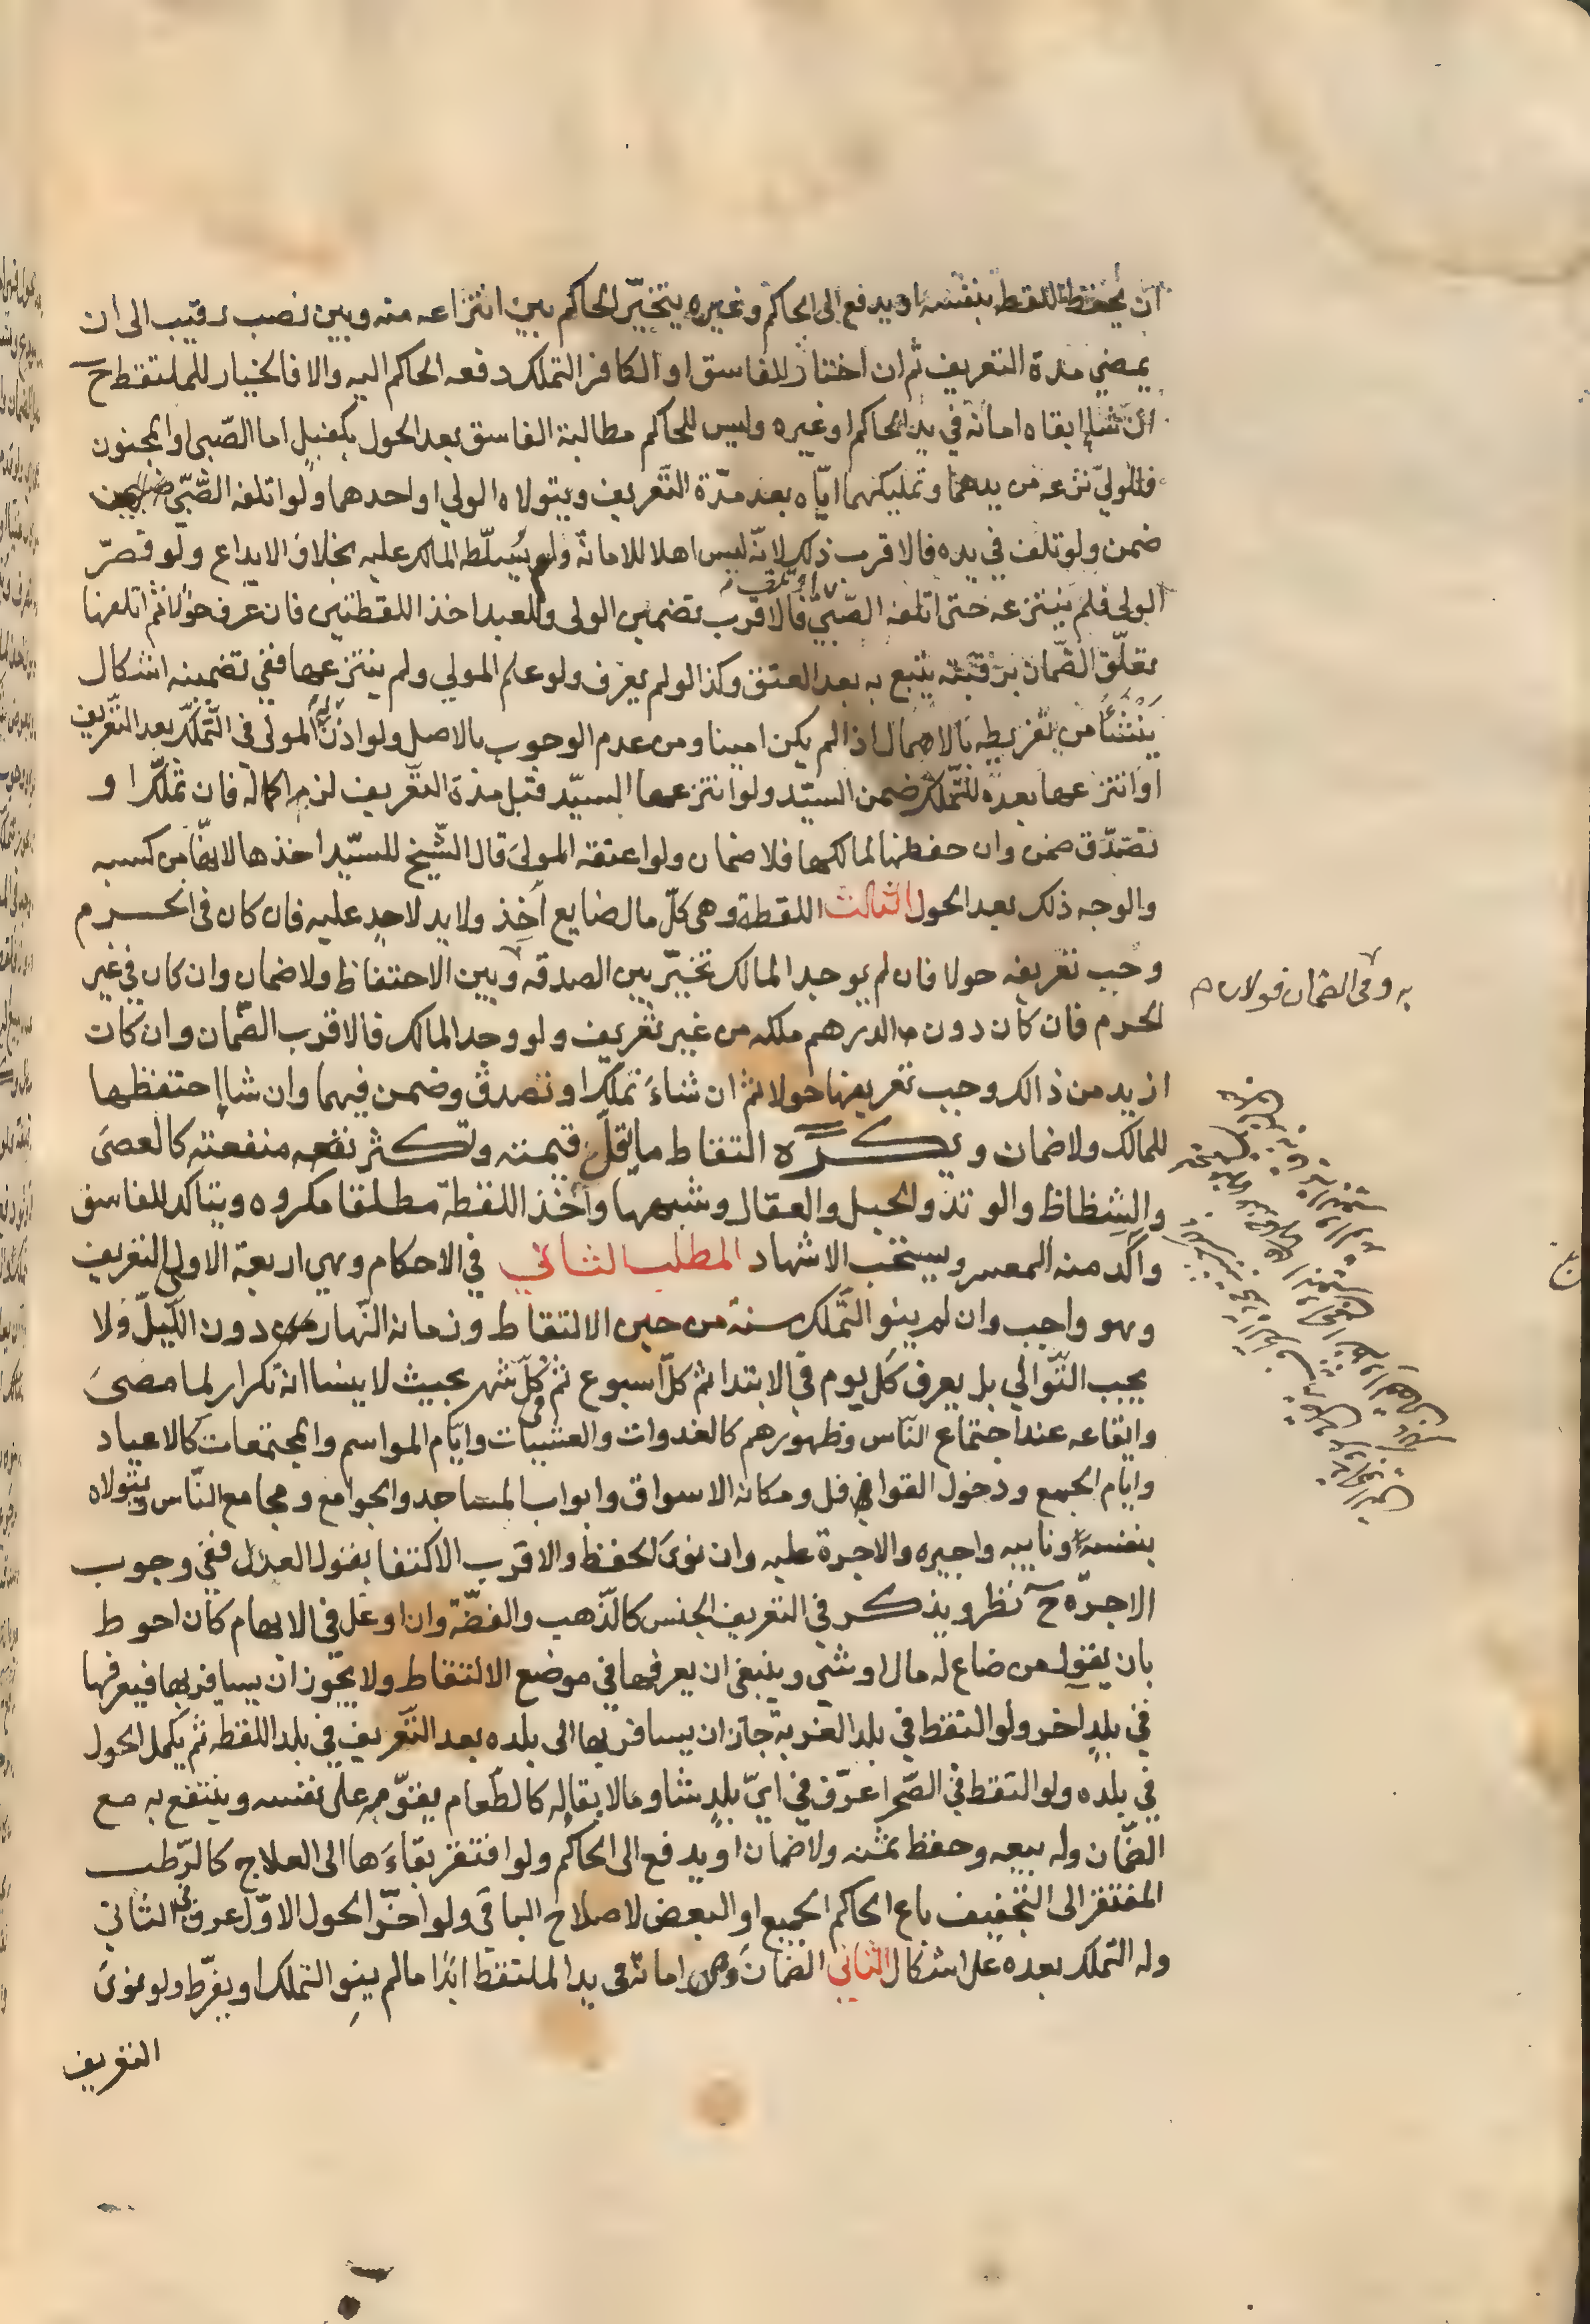 ان يحفظ للقط بنفسه او يدفع الى الحاكم وغيره يتخيّر الحاكم بين انتزاعه منه وبين نصب رقيب الى ان
يمضي مدة التعريف ثم ان اختار الفاسق او الكافر التملك دفعه الحاكم اليه والا فالخيار للملتقط ح
ان شاء ابقاه امانة في يد الحاكم او غيره وليس للحاكم مطالبة الفاسق بعد الحول بكفيل اما الصّبى او المجنون
فللوليّ نزعه من يدهما وتمليكهما ايّاه بعد مدّة التّعريف ويتولاه الولي او احدهما ولو اتلفه الصّبّي
ضمن ولو تلف في يده فالاقرب ذلك لانّه ليس اهلا للامانة ولم يسلّطه المالك عليه بخلاف الايداع ولو قصّر
الولى فلم ينتزعه حتى اتلفه الصّبيّ او تلف فالاقرب تضمين الولى وللعبد اخذ اللقطتين فان عرف حولا ثم اتلفها
تعلّق الضّمان برقبته يتبع به بعد العتق وكذا لو لم يعرف ولو علم المولي ولم ينتزعها ففي تضمينه اشكال
ينشأ من تفريطه بالاهمال اذا لم يكن امينا ومن عدم الوجوب بالاصل ولو اذن له المولى في التّملّك بعد التّعريف
او انتزعها بعده للتّملك ضمن السيّد ولو انتزعها السيّد قبل مدة التعريف لزمه اكماله فان تملّك او
تصدّق ضمن وان حفظها لمالكها فلا ضمان ولو اعتقه المولىَ قال الشّيخ للسيّد اخذها لانها من كسبه
والوجه ذلك بعد الحول الثالث اللقطة وهى كلّ مال ضايع أخِذ ولا يد لاحدٍ عليه فان كان فى الحرم
وجب تعريفه حولا فان لم يوجد المالك تخيّر بين الصدقه وبين الاحتفاظ ولا ضمان وان كان في غير
به وفى الضمان قولان
الحرم فان كان دون الدرهم ملكه من غير تعريف ولو وجد المالك فالاقرب الضّمان وان كانت
ازيد من ذالك وجب تعريفها حولا ثم ان شاءَ تملّك او تصدق وضمن فيهما وان شاا احتفظها
للمالك ولا ضمان ويكره التقاط ما يقلّ قيمته وتكثر نفعه منفعته كالعصىَ
والشِظاظ والوتد والحبل والعقال وشبهها وأخذ اللقطة مطلقا مكروه ويتاكد للفاسق
واكد منه المعسر ويستحب الاشهاد المطلب الثاني في الاحكام وهي اربعة الاولى التعريف
وهو واجب وان لم ينو التّملك سنة من حين الالتقاط وزمانه النّهار دون اللّيل ولا
يجب التّوالي بل يعرف كل يوم في الابتدا ثم كلّ اسبوع ثم كلّ شهر بحيث لا ينسا انه تكرار لما مضىَ
وايقاعه عند اجتماع النّاس وظهورهم كالغدوات والعشيات وايّام المواسم والمجتمعات كالاعياد
وايّام الجمع ودخول القوافل ومكانه الاسواق وابواب المساجد والجوامع ومجامع النّاس ويتولاه
بنفسه ونايبه واجيره والاجرة عليه وان نوىَ الحفظ والاقرب الاكتفا بقول العدل ففي وجوب
الاجرّة ح نظر ويذكر في التعريف الجنس كالذّهب والفضّة وان اوغل في الابهام كان احوط
بان يقول من ضاع له مال او شيي وينبغي ان يعرفها في موضع الالتقاط ولا يجوز ان يسافر بها فيعرفها
في بلدٍ اخر ولو التقط في بلد الغربة جاز ان يسافر بها الى بلده بعد التّعريف في بلد اللقطه ثم يكمل الحول
في بلده ولو التقط في الصّحرا عرّف في ايّ بلدٍ شا وما لا بقا له كالطّعام يقوّمه على نفسه وينتفع به مع
الضّمان وله بيعه وحفظ ثمنه ولا ضمان او يدفع الى الحاكم ولو افتقر بقاءَها الى العلاج كالرّطب
المفتقر الى التجفيف باع الحاكم الجميع او البعض لاصلاح الباقي ولو اخّر الحول الاوّل عرف في الثاني
وله التملك بعده على اشكال الثاني الضّمان وهى امانة في يد الملتقط ابدًا ما لم ينوِ التملك او يفرّط ولو نوىَ
التعريف